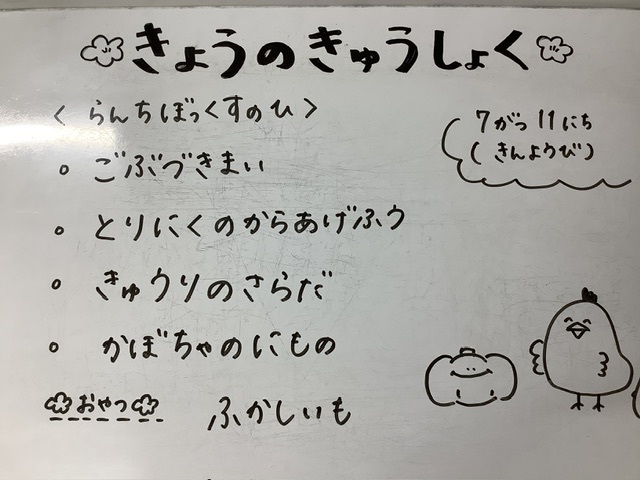 きょうのきゅうしょく
< らんちぼっくすのひ >
7がつ 11にち
( きんようび )
。ごぶづきまい
。とりにくのからあげふう
。きゅうりのさらだ
。かぼちゃのにもの
おやつ ふかしいも